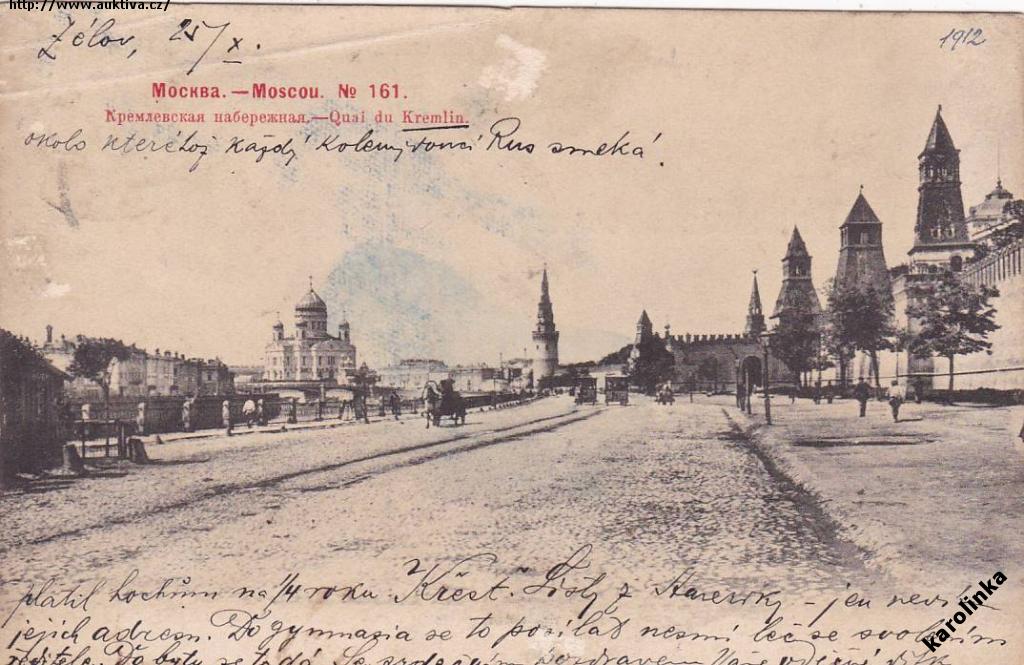 http://www.auktiva.cz/
Zélov, 25/X.
1912
Москва. — Moscou. № 161.
Кремлевская набережная. — Quai du Kremlin.
okolo kteréhož každý kolemjdoucí Rus smeká.
platil hochům na 1/4 roku. Křest. Listy z - jen
jejich adresu. Do gymnasia se to posílat nesmí leč se svolením
ředitele. to dá. Se srdečným pozdravem
karolinka